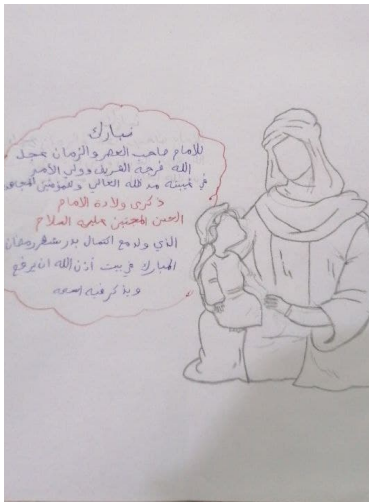 نبارك
للامام صاحب العصر والزمان عجل
الله فرجه الشريف وولي الأمر
في غيبته مد ظله العالي وللمؤمنين
ذكرى ولادة الامام
الحسن المجتبى عليه السلام
الذي ولد مع اكتمال بدر شهر رمضان
المبارك في بيت أذن الله ان يرفع
ويذكر فيه اسمه